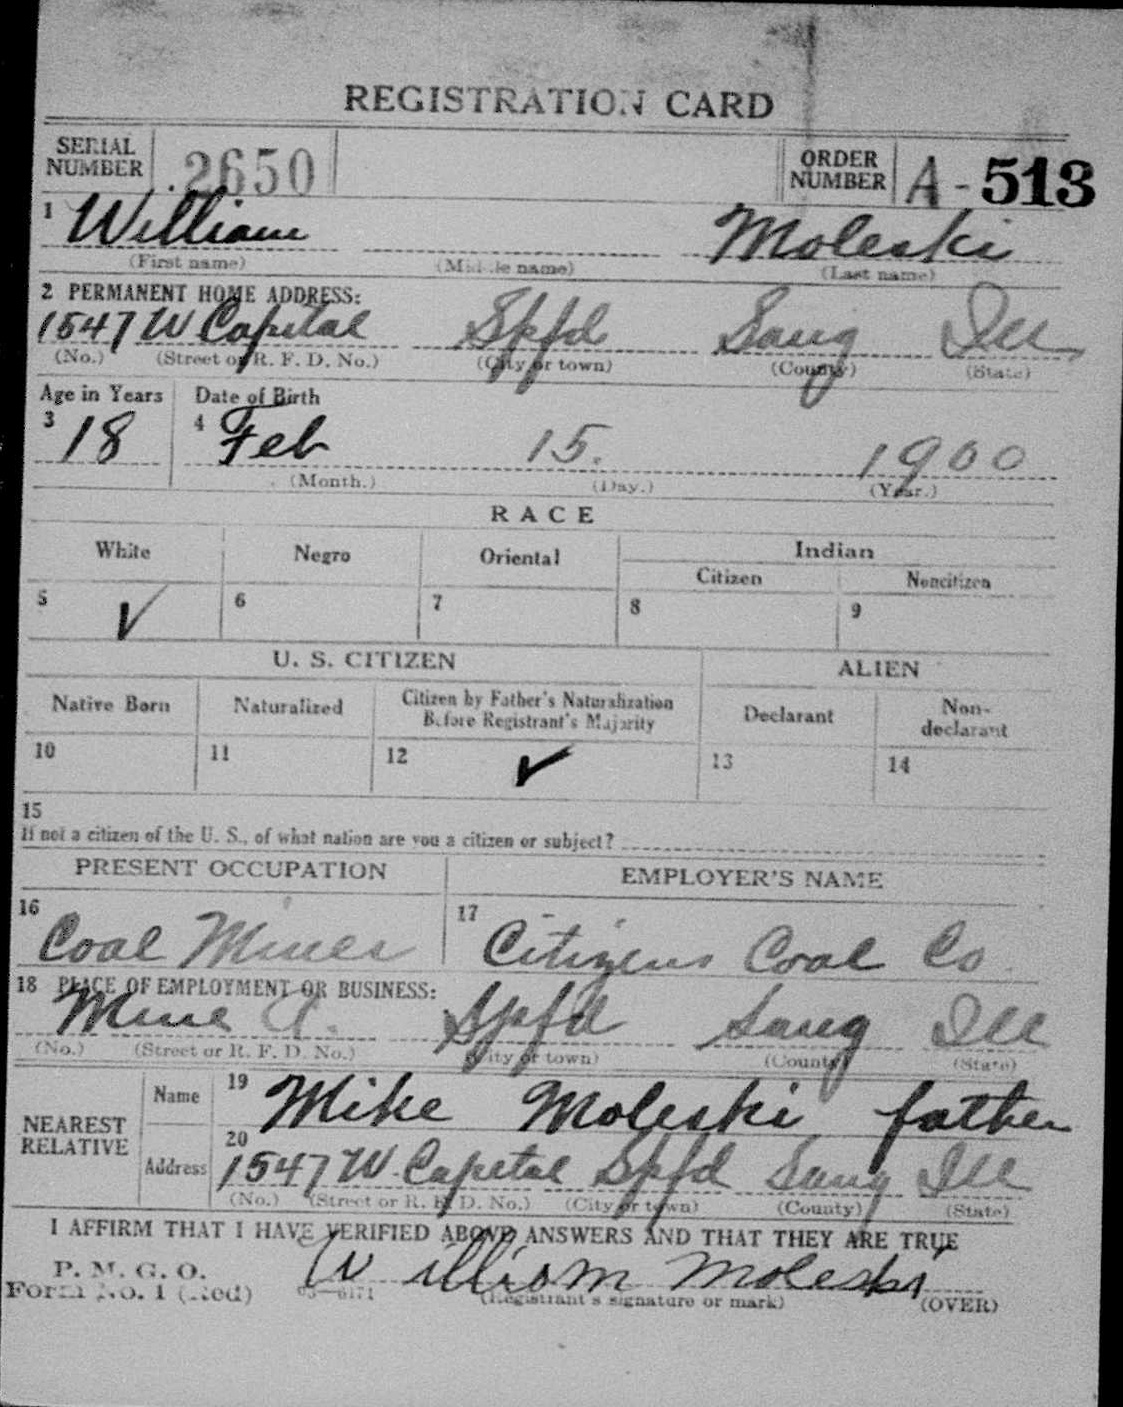 REGISTRATION CARD
SERIAL NUMBER 2650 ORDER NUMBER A-513
1 William Moleski
(First name) (Middle name) (Last name)
2 PERMANENT HOME ADDRESS:
1547 W Capital Spfd Sang Ill
(No.) (Street or R. F. D. No.) (City or town) (County) (State)
Age in Years Date of Birth
3 18 4 Feb 15. 1900
(Month.) (Day.) (Year.)
RACE
White Negro Oriental Indian
Citizen Noncitizen
5 ✓ 6 7 8 9
U. S. CITIZEN ALIEN
Native Born Naturalized Citizen by Father's Naturalization Before Registrant's Majority Declarant Non-declarant
10 11 12 ✓ 13 14
15
If not a citizen of the U. S., of what nation are you a citizen or subject?
PRESENT OCCUPATION EMPLOYER'S NAME
16 Coal Miner 17 Citizens Coal Co
18 PLACE OF EMPLOYMENT OR BUSINESS:
Mine A. Spfd Sang Ill
(No.) (Street or R. F. D. No.) (City or town) (County) (State)
NEAREST RELATIVE Name 19 Mike Moleski father
Address 20 1547 W Capital Spfd Sang Ill
(No.) (Street or R. F. D. No.) (City or town) (County) (State)
I AFFIRM THAT I HAVE VERIFIED ABOVE ANSWERS AND THAT THEY ARE TRUE
P. M. G. O.
Form No. 1 (Red) 03—6171 William Moleski
(Registrant's signature or mark) (OVER)